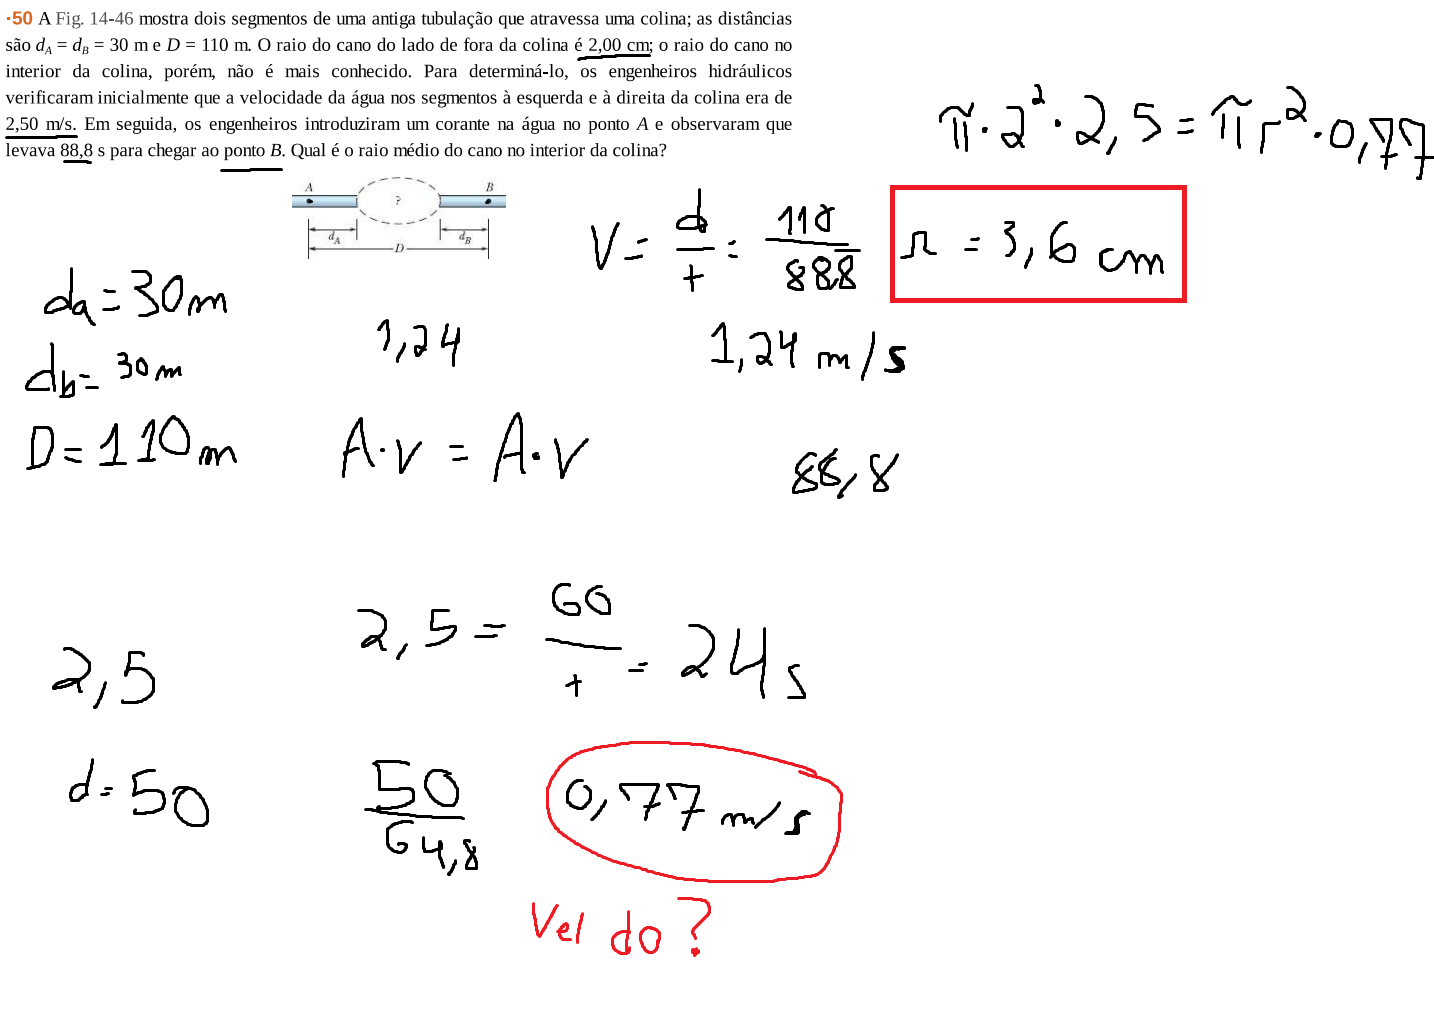 ·50 A Fig. 14-46 mostra dois segmentos de uma antiga tubulação que atravessa uma colina; as distâncias
são dA = dB = 30 m e D = 110 m. O raio do cano do lado de fora da colina é 2,00 cm; o raio do cano no
interior da colina, porém, não é mais conhecido. Para determiná-lo, os engenheiros hidráulicos
verificaram inicialmente que a velocidade da água nos segmentos à esquerda e à direita da colina era de
2,50 m/s. Em seguida, os engenheiros introduziram um corante na água no ponto A e observaram que
levava 88,8 s para chegar ao ponto B. Qual é o raio médio do cano no interior da colina?
π·2²·2,5 = πr²·0,77
A ? B
dA dB
D
V = d/t = 110/88,8
r = 3,6 cm
da = 30m
1,24
1,24 m/s
db = 30m
D = 110m
A·v = A·v
88,8
2,5 = 60/t = 24s
2,5
d = 50
50/64,8
0,77 m/s
Vel do ?